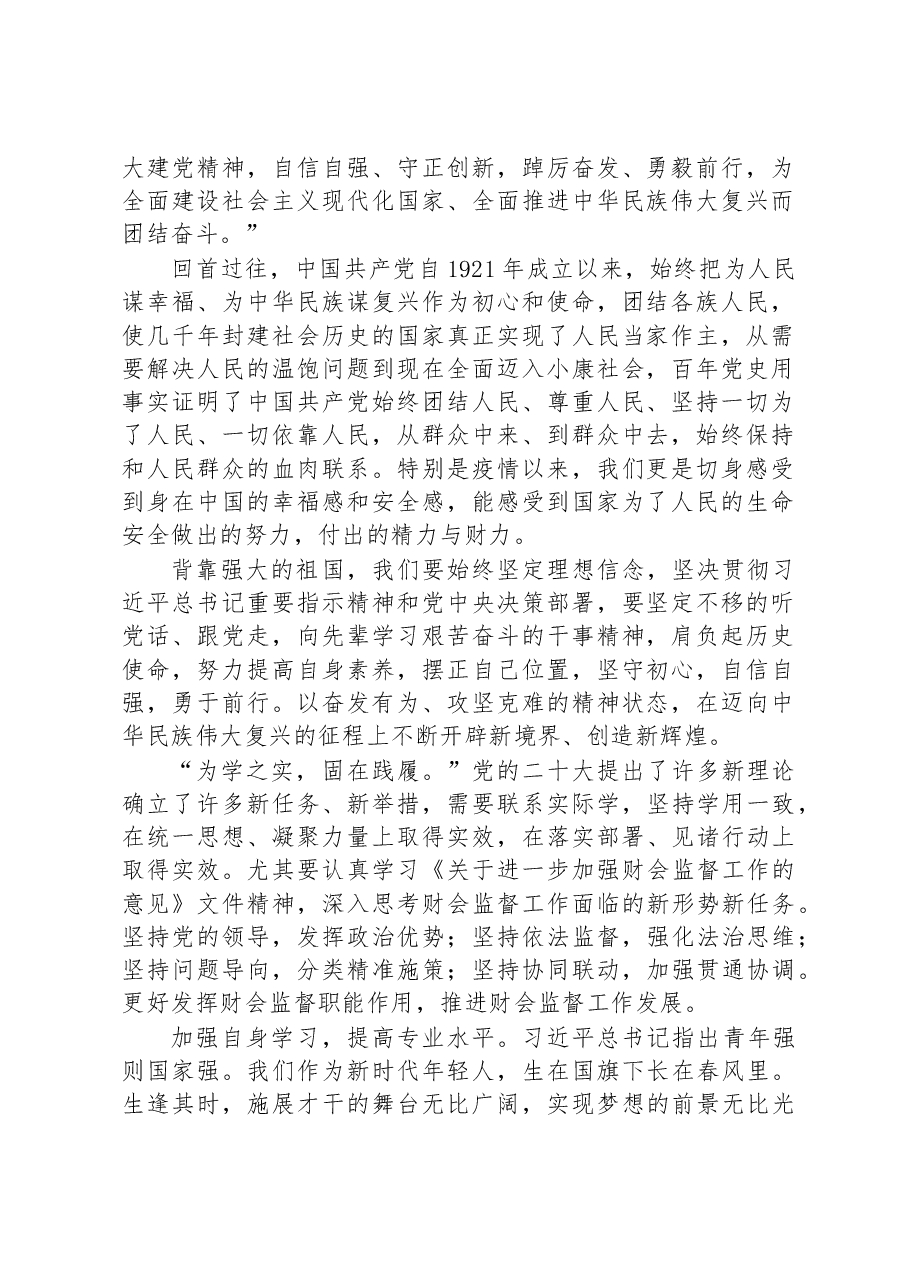 大建党精神，自信自强、守正创新，踔厉奋发、勇毅前行，为
全面建设社会主义现代化国家、全面推进中华民族伟大复兴而
团结奋斗。”
回首过往，中国共产党自1921年成立以来，始终把为人民
谋幸福、为中华民族谋复兴作为初心和使命，团结各族人民，
使几千年封建社会历史的国家真正实现了人民当家作主，从需
要解决人民的温饱问题到现在全面迈入小康社会，百年党史用
事实证明了中国共产党始终团结人民、尊重人民、坚持一切为
了人民、一切依靠人民，从群众中来、到群众中去，始终保持
和人民群众的血肉联系。特别是疫情以来，我们更是切身感受
到身在中国的幸福感和安全感，能感受到国家为了人民的生命
安全做出的努力，付出的精力与财力。
背靠强大的祖国，我们要始终坚定理想信念，坚决贯彻习
近平总书记重要指示精神和党中央决策部署，要坚定不移的听
党话、跟党走，向先辈学习艰苦奋斗的干事精神，肩负起历史
使命，努力提高自身素养，摆正自己位置，坚守初心，自信自
强，勇于前行。以奋发有为、攻坚克难的精神状态，在迈向中
华民族伟大复兴的征程上不断开辟新境界、创造新辉煌。
“为学之实，固在践履。”党的二十大提出了许多新理论
确立了许多新任务、新举措，需要联系实际学，坚持学用一致，
在统一思想、凝聚力量上取得实效，在落实部署、见诸行动上
取得实效。尤其要认真学习《关于进一步加强财会监督工作的
意见》文件精神，深入思考财会监督工作面临的新形势新任务。
坚持党的领导，发挥政治优势；坚持依法监督，强化法治思维；
坚持问题导向，分类精准施策；坚持协同联动，加强贯通协调。
更好发挥财会监督职能作用，推进财会监督工作发展。
加强自身学习，提高专业水平。习近平总书记指出青年强
则国家强。我们作为新时代年轻人，生在国旗下长在春风里。
生逢其时，施展才干的舞台无比广阔，实现梦想的前景无比光